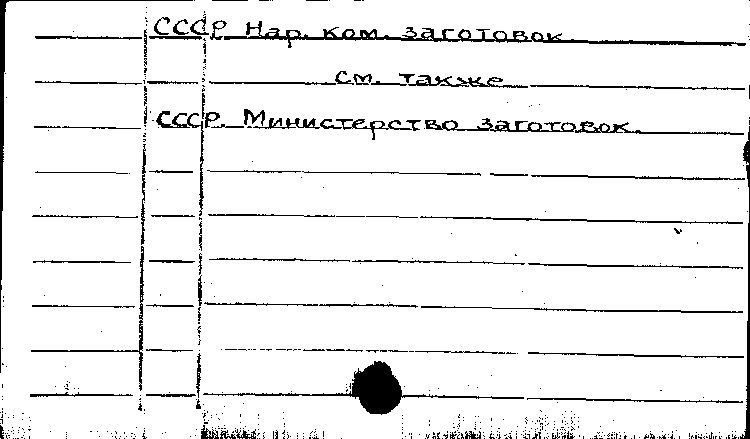 СССР Нар. ком. заготовок.
см. также
СССР. Министерство заготовок.